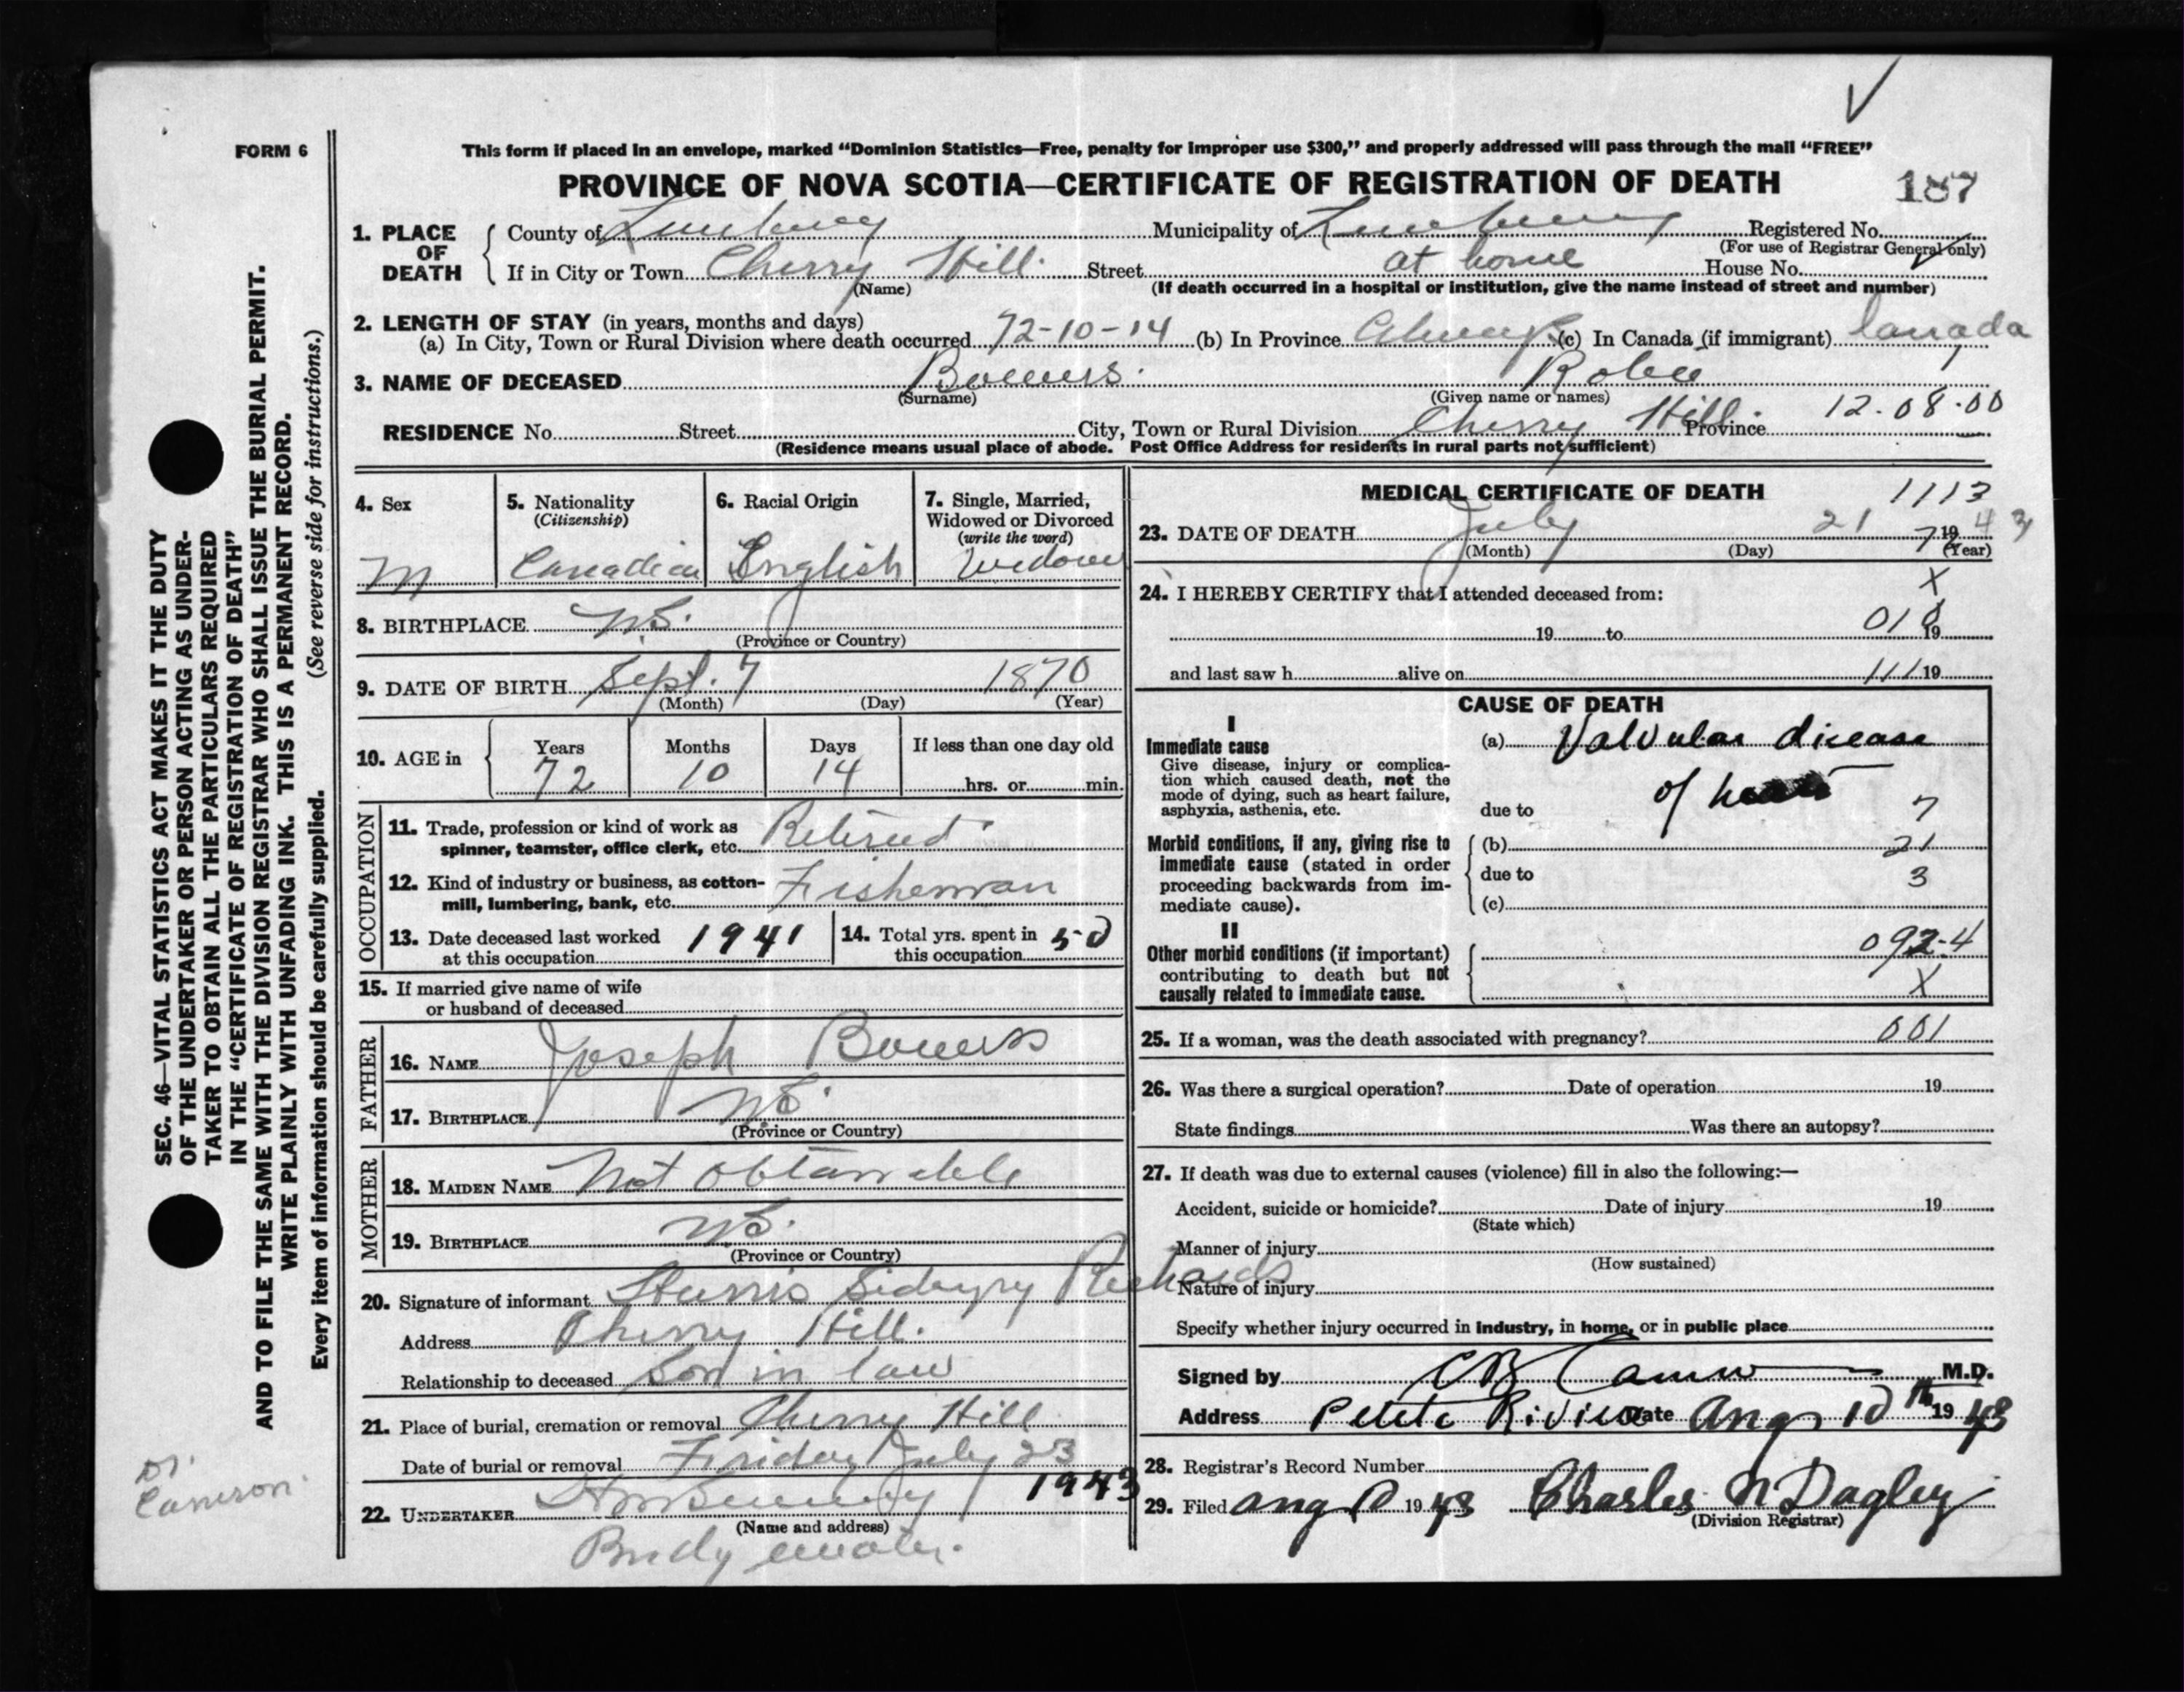 FORM 6
This form if placed in an envelope, marked "Dominion Statistics—Free, penalty for improper use $300," and properly addressed will pass through the mail "FREE"
PROVINCE OF NOVA SCOTIA—CERTIFICATE OF REGISTRATION OF DEATH 187
1. PLACE OF DEATH
County of Lunenburg Municipality of Lunenburg Registered No.
(For use of Registrar General only)
If in City or Town Cherry Hill. Street at home House No.
(Name) (If death occurred in a hospital or institution, give the name instead of street and number)
2. LENGTH OF STAY (in years, months and days)
(a) In City, Town or Rural Division where death occurred 72-10-14 (b) In Province Always (c) In Canada (if immigrant) Canada
3. NAME OF DECEASED Bowers Robie
(Surname) (Given name or names)
12.08.00
RESIDENCE No. Street City, Town or Rural Division Cherry Hill. Province
(Residence means usual place of abode. Post Office Address for residents in rural parts not sufficient)
4. Sex M
5. Nationality (Citizenship) Canadian
6. Racial Origin English
7. Single, Married, Widowed or Divorced (write the word) Widower
8. BIRTHPLACE N.S.
(Province or Country)
9. DATE OF BIRTH Sept. 7 1870
(Month) (Day) (Year)
10. AGE in Years 72 Months 10 Days 14 If less than one day old
hrs. or min.
OCCUPATION
11. Trade, profession or kind of work as spinner, teamster, office clerk, etc. Retired
12. Kind of industry or business, as cotton-mill, lumbering, bank, etc. Fisherman
13. Date deceased last worked at this occupation 1941
14. Total yrs. spent in this occupation 50
15. If married give name of wife
or husband of deceased
FATHER
16. NAME Joseph Bowers
17. BIRTHPLACE N.S.
(Province or Country)
MOTHER
18. MAIDEN NAME Not Obtainable
19. BIRTHPLACE N.S.
(Province or Country)
20. Signature of informant Richards
Address Cherry Hill.
Relationship to deceased Son in law
21. Place of burial, cremation or removal Cherry Hill
Date of burial or removal Friday July 23
1943
22. UNDERTAKER
(Name and address)
Bridgewater.
MEDICAL CERTIFICATE OF DEATH 1113
23. DATE OF DEATH July 21 1943
(Month) (Day) 7 (Year)
24. I HEREBY CERTIFY that I attended deceased from: X
19 to 018 19
and last saw h alive on 111 19
CAUSE OF DEATH
I
Immediate cause
Give disease, injury or complica-
tion which caused death, not the
mode of dying, such as heart failure,
asphyxia, asthenia, etc.
(a) Valvular disease
of heart
due to 7
Morbid conditions, if any, giving rise to
immediate cause (stated in order
proceeding backwards from im-
mediate cause).
(b) 21
due to 3
(c)
II
Other morbid conditions (if important)
contributing to death but not
causally related to immediate cause.
092-4
X
25. If a woman, was the death associated with pregnancy? 001
26. Was there a surgical operation? Date of operation 19
State findings Was there an autopsy?
27. If death was due to external causes (violence) fill in also the following:—
Accident, suicide or homicide? Date of injury 19
(State which)
Manner of injury
(How sustained)
Nature of injury
Specify whether injury occurred in industry, in home, or in public place
Signed by Cameron M.D.
Address Petite Riviere Date Aug 10th 1943
28. Registrar's Record Number
29. Filed Aug 10 1943 Charles N Dagley
(Division Registrar)
SEC. 46—VITAL STATISTICS ACT MAKES IT THE DUTY
OF THE UNDERTAKER OR PERSON ACTING AS UNDER-
TAKER TO OBTAIN ALL THE PARTICULARS REQUIRED
IN THE "CERTIFICATE OF REGISTRATION OF DEATH"
AND TO FILE THE SAME WITH THE DIVISION REGISTRAR WHO SHALL ISSUE THE BURIAL PERMIT.
WRITE PLAINLY WITH UNFADING INK. THIS IS A PERMANENT RECORD.
Every item of information should be carefully supplied. (See reverse side for instructions.)
Dr. Cameron.